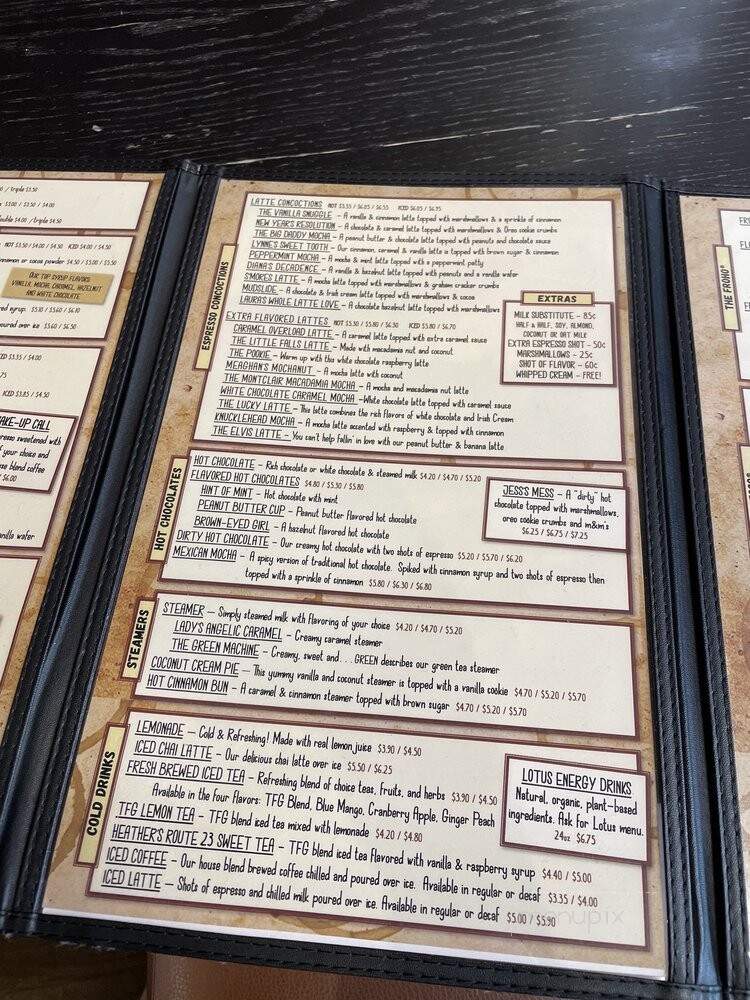 / triple $3.50
$3.00 / $3.50 / $4.00
double $4.00 / triple $4.50
HOT $3.50 / $4.00 / $4.50 ICED $4.00 / $4.50
cinnamon or cocoa powder $4.50 / $5.00 / $5.50
OUR TOP SYRUP FLAVORS:
VANILLA, MOCHA, CARAMEL, HAZELNUT
AND WHITE CHOCOLATE
syrup. $5.10 / $5.60 / $6.10
poured over ice $5.60 / $6.50
ICED $3.35 / $4.00
ICED $3.85 / $4.50
AKE-UP CALL
espresso sweetened with
of your choice and
house blend coffee
$6.00
vanilla wafer
ESPRESSO CONCOCTIONS
LATTE CONCOCTIONS HOT $5.55 / $6.05 / $6.55 ICED $6.05 / $6.95
THE VANILLA SNUGGLE - A vanilla & cinnamon latte topped with marshmallows & a sprinkle of cinnamon
NEW YEAR'S RESOLUTION - A chocolate & caramel latte topped with marshmallows & Oreo cookie crumbs
THE BIG DADDY MOCHA - A peanut butter & chocolate latte topped with peanuts and chocolate sauce
LYNNE'S SWEET TOOTH - Our cinnamon, caramel & vanilla latte is topped with brown sugar & cinnamon
PEPPERMINT MOCHA - A mocha & mint latte topped with a peppermint patty
DIANA'S DECADENCE - A vanilla & hazelnut latte topped with peanuts and a vanilla wafer
S'MORES LATTE - A mocha latte topped with marshmallows & graham cracker crumbs
MUDSLIDE - A chocolate & Irish cream latte topped with marshmallows & cocoa
LAURA'S WHOLE LATTE LOVE - A chocolate hazelnut latte topped with marshmallows
EXTRA FLAVORED LATTES HOT $5.30 / $5.80 / $6.30 ICED $5.80 / $6.70
CARAMEL OVERLOAD LATTE - A caramel latte topped with extra caramel sauce
THE LITTLE FALLS LATTE - Made with macadamia nut and coconut
THE POOKIE - Warm up with this white chocolate raspberry latte
MEAGHAN'S MOCHANUT - A mocha latte with coconut
THE MONTCLAIR MACADAMIA MOCHA - A mocha and macadamia nut latte
WHITE CHOCOLATE CARAMEL MOCHA -White chocolate latte topped with caramel sauce
THE LUCKY LATTE - This latte combines the rich flavors of white chocolate and Irish Cream
KNUCKLEHEAD MOCHA - A mocha latte accented with raspberry & topped with cinnamon
THE ELVIS LATTE - You can't help fallin' in love with our peanut butter & banana latte
EXTRAS
MILK SUBSTITUTE - 85¢
HALF & HALF, SOY, ALMOND,
COCONUT OR OAT MILK
EXTRA ESPRESSO SHOT - 50¢
MARSHMALLOWS - 25¢
SHOT OF FLAVOR - 60¢
WHIPPED CREAM - FREE!
HOT CHOCOLATES
HOT CHOCOLATE - Rich chocolate or white chocolate & steamed milk $4.20 / $4.70 / $5.20
FLAVORED HOT CHOCOLATES $4.80 / $5.30 / $5.80
HINT OF MINT - Hot chocolate with mint
PEANUT BUTTER CUP - Peanut butter flavored hot chocolate
BROWN-EYED GIRL - A hazelnut flavored hot chocolate
DIRTY HOT CHOCOLATE - Our creamy hot chocolate with two shots of espresso $5.20 / $5.70 / $6.20
MEXICAN MOCHA - A spicy version of traditional hot chocolate. Spiked with cinnamon syrup and two shots of espresso then
topped with a sprinkle of cinnamon $5.80 / $6.30 / $6.80
JESS'S MESS - A "dirty" hot
chocolate topped with marshmallows,
oreo cookie crumbs and m&m's
$6.25 / $6.75 / $7.25
STEAMERS
STEAMER - Simply steamed milk with flavoring of your choice $4.20 / $4.70 / $5.20
LADY'S ANGELIC CARAMEL - Creamy caramel steamer
THE GREEN MACHINE - Creamy, sweet and... GREEN describes our green tea steamer
COCONUT CREAM PIE - This yummy vanilla and coconut steamer is topped with a vanilla cookie $4.70 / $5.20 / $5.70
HOT CINNAMON BUN - A caramel & cinnamon steamer topped with brown sugar $4.70 / $5.20 / $5.70
COLD DRINKS
LEMONADE - Cold & Refreshing! Made with real lemon juice $3.90 / $4.50
ICED CHAI LATTE - Our delicious chai latte over ice $5.50 / $6.25
FRESH BREWED ICED TEA - Refreshing blend of choice teas, fruits, and herbs $3.90 / $4.50
Available in the four flavors: TFG Blend, Blue Mango, Cranberry Apple, Ginger Peach
TFG LEMON TEA - TFG blend iced tea mixed with lemonade $4.20 / $4.80
HEATHER'S ROUTE 23 SWEET TEA - TFG blend iced tea flavored with vanilla & raspberry syrup $4.40 / $5.00
ICED COFFEE - Our house blend brewed coffee chilled and poured over ice. Available in regular or decaf $3.35 / $4.00
ICED LATTE - Shots of espresso and chilled milk poured over ice. Available in regular or decaf $5.00 / $5.90
LOTUS ENERGY DRINKS
Natural, organic, plant-based
ingredients. Ask for Lotus menu.
24oz $6.75
THE FROHO®
menupix